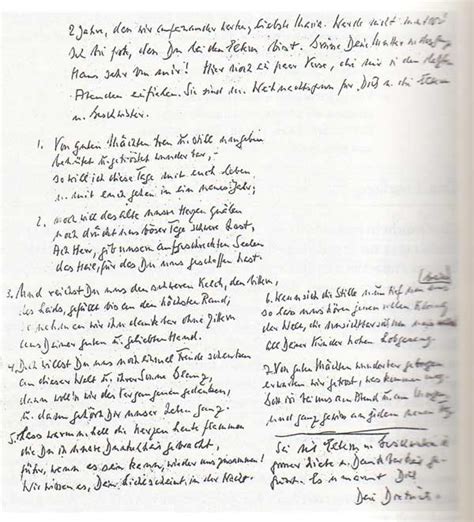 2 Jahre, dass wir aufeinander warten, liebste Maria. Werde nicht mutlos!
Ich bin froh, dass Du bei den Eltern bist. Grüsse Deine Mutter u. das ganze
Haus sehr von mir! Hier noch ein paar Verse, die mir in den letzten
Abenden einfielen. Sie sind Weihnachtsgruss für Dich u. die Eltern
u. Geschwister.
1. Von guten Mächten treu u. still umgeben
behütet u. getröstet wunderbar, –
so will ich diese Tage mit euch leben
u. mit euch gehen in ein neues Jahr;
2. noch will das alte unsre Herzen quälen
noch drückt uns böser Tage schwere Last,
Ach Herr, gib unsern aufgeschreckten Seelen
das Heil, für das Du uns geschaffen hast.
3. Und reichst Du uns den schweren Kelch, den bittern,
des Leids, gefüllt bis an den höchsten Rand,
so nehmen wir ihn dankbar ohne Zittern
aus Deiner guten u. geliebten Hand.
4. Doch willst Du uns noch einmal Freude schenken
an dieser Welt u. ihrer Sonne Glanz,
dann woll'n wir des Vergangenen gedenken,
u. dann gehört Dir unser Leben ganz.
5. Lass warm u. hell die Kerzen heute flammen
die Du in unsre Dunkelheit gebracht,
führ, wenn es sein kann, wieder uns zusammen!
Wir wissen es, Dein Licht scheint in der Nacht.
6. Wenn sich die Stille nun tief um uns
so lass uns hören jenen vollen Klang
der Welt, die unsichtbar sich um uns
all Deiner Kinder hohen Lobgesang.
7. Von guten Mächten wunderbar geborgen
erwarten wir getrost, was kommen mag.
Gott ist bei uns am Abend u. am Morgen
und ganz gewiss an jedem neuen Tag.
Sei mit Eltern u. Geschwistern in
grosser Liebe u. Dankbarkeit ge-
grüsst. Es umarmt Dich
Dein Dietrich.